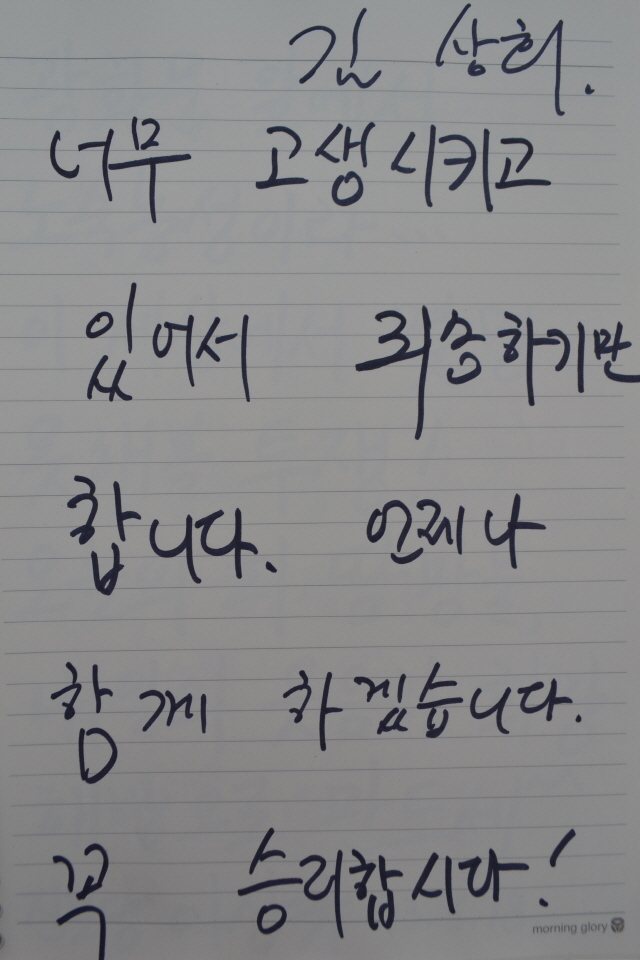 김 상희.
너무 고생시키고
있어서 죄송하기만
합니다. 언제나
함께 하겠습니다.
꼭 승리합시다!
morning glory